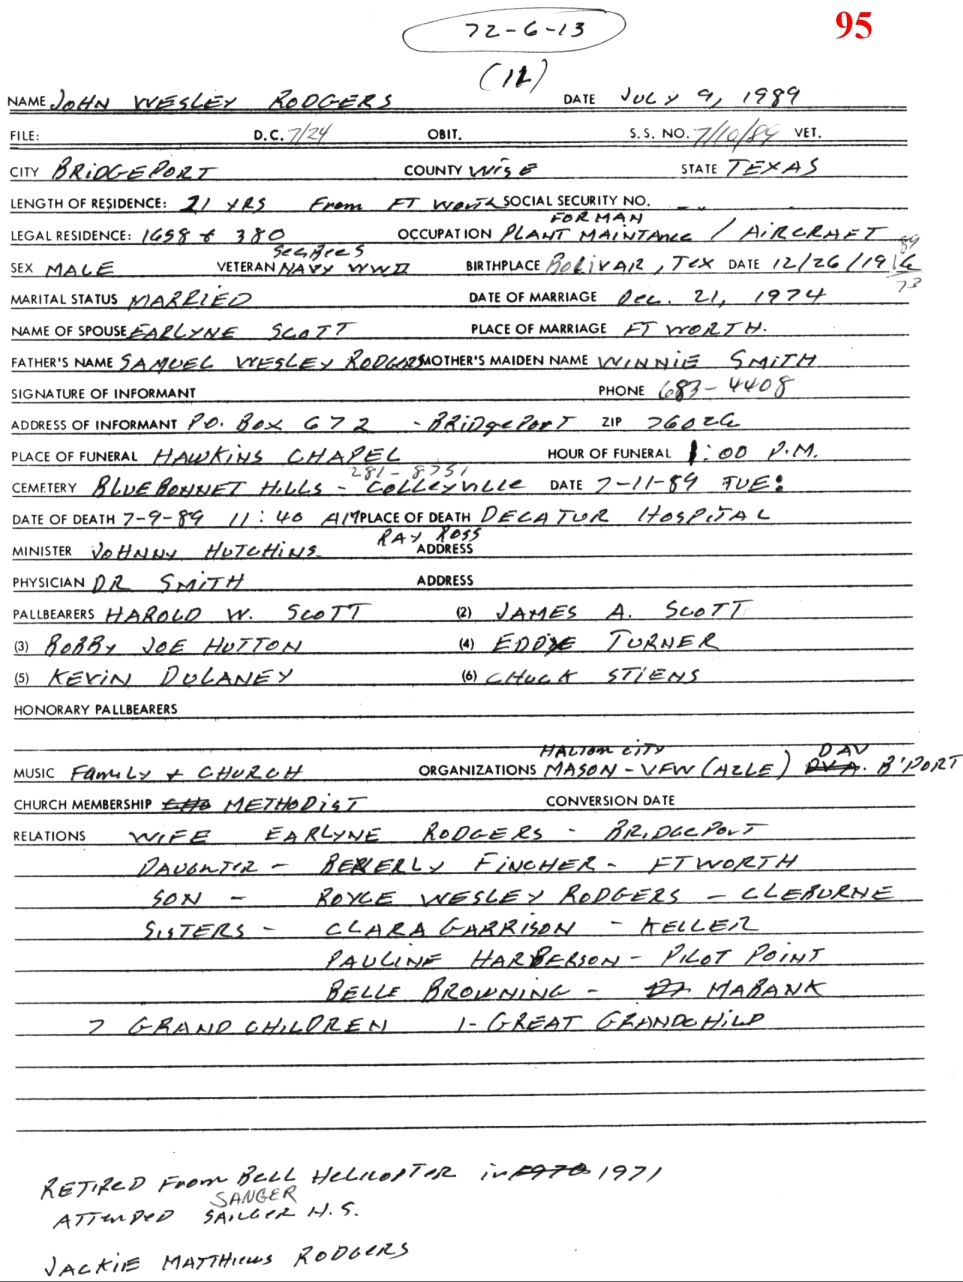 72-6-13
95
(12)
NAME JOHN WESLEY RODGERS DATE JULY 9, 1989
FILE: D.C. 7/24 OBIT. S.S. NO. 7/10/89 VET.
CITY BRIDGEPORT COUNTY WISE STATE TEXAS
LENGTH OF RESIDENCE: 21 YRS From FT Worth SOCIAL SECURITY NO. - -
FORMAN
LEGAL RESIDENCE: 1658 & 380 OCCUPATION PLANT MAINTANCE / AIRCRAFT
SeaBees 89
SEX MALE VETERAN NAVY WWII BIRTHPLACE BOLIVAIR, TEX DATE 12/26/1916
73
MARITAL STATUS MARRIED DATE OF MARRIAGE DEC. 21, 1974
NAME OF SPOUSE EARLYNE SCOTT PLACE OF MARRIAGE FT WORTH.
FATHER'S NAME SAMUEL WESLEY RODGERS MOTHER'S MAIDEN NAME WINNIE SMITH
SIGNATURE OF INFORMANT PHONE 683-4408
ADDRESS OF INFORMANT P.O. BOX 672 - BRIDGEPORT ZIP 76026
PLACE OF FUNERAL HAWKINS CHAPEL HOUR OF FUNERAL 1:00 P.M.
281-8751
CEMETERY BLUEBONNET HILLS - COLLEYVILLE DATE 7-11-89 TUE:
DATE OF DEATH 7-9-89 11:40 AM PLACE OF DEATH DECATUR HOSPITAL
RAY ROSS
MINISTER JOHNNY HUTCHINS ADDRESS
PHYSICIAN DR SMITH ADDRESS
PALLBEARERS HAROLD W. SCOTT (2) JAMES A. SCOTT
(3) BOBBY JOE HUTTON (4) EDDIE TURNER
(5) KEVIN DULANEY (6) CHUCK STIENS
HONORARY PALLBEARERS
HALTOM CITY DAV
MUSIC FAMILY + CHURCH ORGANIZATIONS MASON - VFW (AZLE) DVA. B'PORT
CHURCH MEMBERSHIP METHODIST CONVERSION DATE
RELATIONS WIFE EARLYNE RODGERS - BRIDGEPORT
DAUGHTER - BEVERLY FINCHER - FT WORTH
SON - ROYCE WESLEY RODGERS - CLEBURNE
SISTERS - CLARA GARRISON - KELLER
PAULINE HARBERSON - PILOT POINT
BELLE BROWNING - MABANK
7 GRANDCHILDREN 1- GREAT GRANDCHILD
RETIRED From BELL HELICOPTER in 1970 1971
SANGER
ATTENDED SANGER H.S.
JACKIE MATTHEWS RODGERS